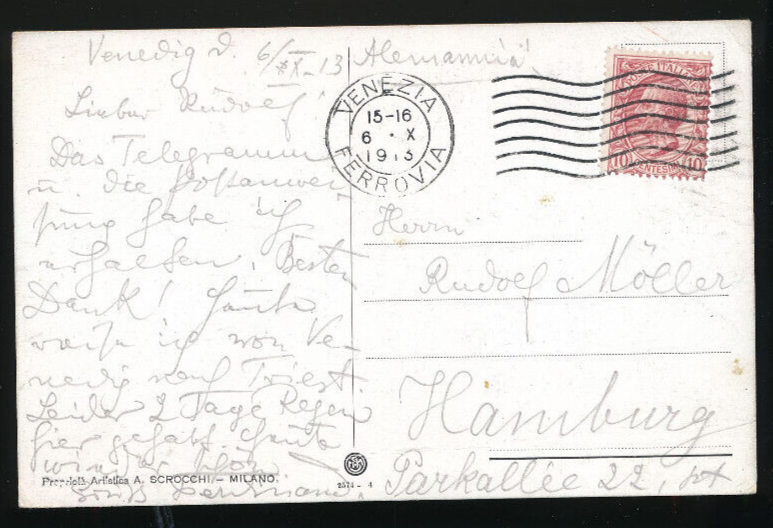 Venedig d. 6/X-13
Lieber Rudolf!
Das Telegramm
u. die Postanwei-
sung habe ich
erhalten. Besten
Dank! Heute
reise ich von Ve-
nedig nach Triest
Leider 2 Tage Regen
hier gehabt. Heute
wieder schön
Gruß Hermann.
Proprietà Artistica A. SCROCCHI - MILANO.
2574 - 4
VENEZIA
15-16
6 · X
1913
FERROVIA
POSTE ITALIANE
10 CENTESIMI 10
Herrn
Rudolf Möller
Hamburg
Parkallee 22, pt